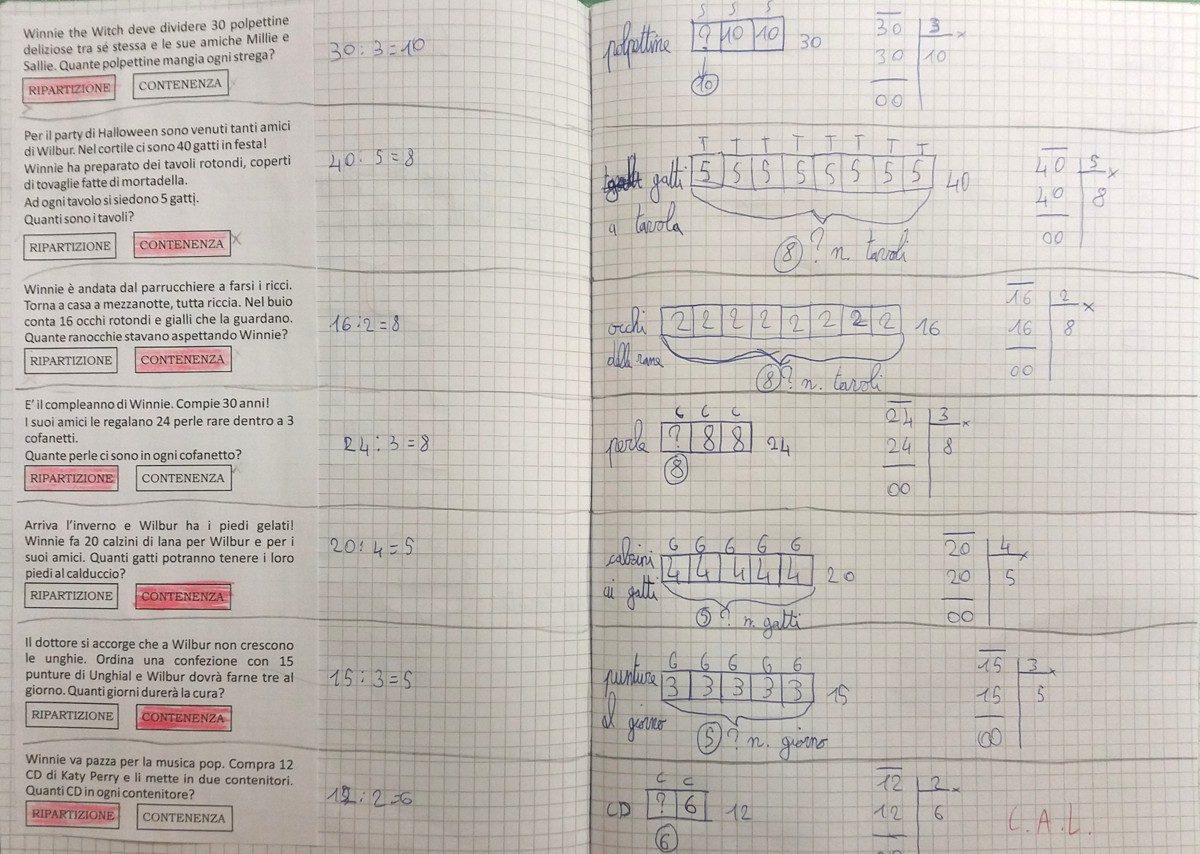 Winnie the Witch deve dividere 30 polpettine
deliziose tra sé stessa e le sue amiche Millie e
Sallie. Quante polpettine mangia ogni strega?
RIPARTIZIONE CONTENENZA
30 : 3 = 10
S S S
polpettine ? 10 10 30
10
30 3
30 10
00
Per il party di Halloween sono venuti tanti amici
di Wilbur. Nel cortile ci sono 40 gatti in festa!
Winnie ha preparato dei tavoli rotondi, coperti
di tovaglie fatte di mortadella.
Ad ogni tavolo si siedono 5 gatti.
Quanti sono i tavoli?
RIPARTIZIONE CONTENENZA
40 : 5 = 8
T T T T T T T T
gatti 5 5 5 5 5 5 5 5 40
a tavola
8 ? n. tavoli
40 5
40 8
00
Winnie è andata dal parrucchiere a farsi i ricci.
Torna a casa a mezzanotte, tutta riccia. Nel buio
conta 16 occhi rotondi e gialli che la guardano.
Quante ranocchie stavano aspettando Winnie?
RIPARTIZIONE CONTENENZA
16 : 2 = 8
occhi 2 2 2 2 2 2 2 2 16
delle rane
8 ? n. tavoli
16 2
16 8
00
E' il compleanno di Winnie. Compie 30 anni!
I suoi amici le regalano 24 perle rare dentro a 3
cofanetti.
Quante perle ci sono in ogni cofanetto?
RIPARTIZIONE CONTENENZA
24 : 3 = 8
C C C
perle ? 8 8 24
8
24 3
24 8
00
Arriva l'inverno e Wilbur ha i piedi gelati!
Winnie fa 20 calzini di lana per Wilbur e per i
suoi amici. Quanti gatti potranno tenere i loro
piedi al calduccio?
RIPARTIZIONE CONTENENZA
20 : 4 = 5
G G G G G
calzini 4 4 4 4 4 20
ai gatti
5 ? n. gatti
20 4
20 5
00
Il dottore si accorge che a Wilbur non crescono
le unghie. Ordina una confezione con 15
punture di Unghial e Wilbur dovrà farne tre al
giorno. Quanti giorni durerà la cura?
RIPARTIZIONE CONTENENZA
15 : 3 = 5
G G G G G
punture 3 3 3 3 3 15
al giorno
5 ? n. giorno
15 3
15 5
00
Winnie va pazza per la musica pop. Compra 12
CD di Katy Perry e li mette in due contenitori.
Quanti CD in ogni contenitore?
RIPARTIZIONE CONTENENZA
12 : 2 = 6
C C
CD ? 6 12
6
12 2
12 6
C.A.L.